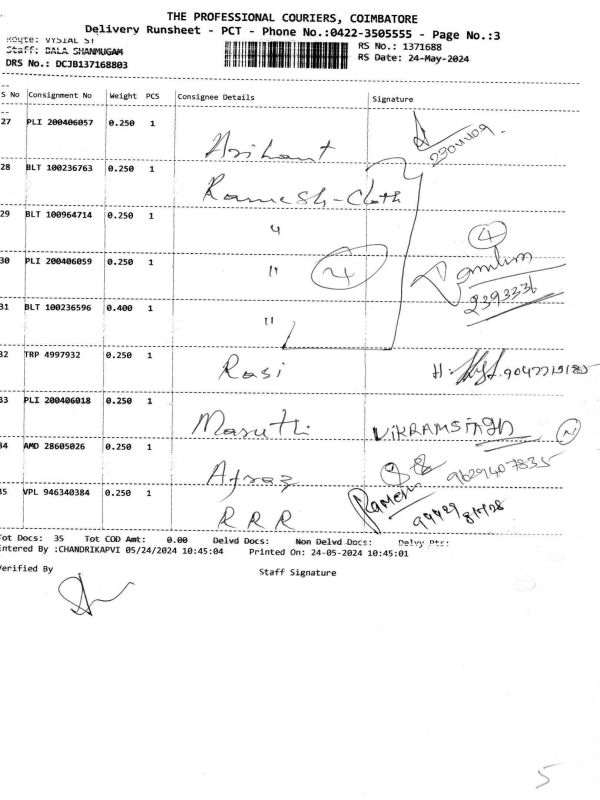 THE PROFESSIONAL COURIERS, COIMBATORE
Delivery Runsheet - PCT - Phone No.:0422-3505555 - Page No.:3
Route: VYSIAL ST
Staff: BALA SHANMUGAM
DRS No.: DCJB137168803
RS No.: 1371688
RS Date: 24-May-2024
S No Consignment No Weight PCS Consignee Details Signature
27 PLI 200406057 0.250 1 Arihant
28 BLT 100236763 0.250 1 Ramesh-Cloth
29 BLT 100964714 0.250 1 "
30 PLI 200406059 0.250 1 " 4 4
2393336
31 BLT 100236596 0.400 1 "
32 TRP 4997932 0.250 1 Rasi H.
33 PLI 200406018 0.250 1 Maruthi VIKRAMSINGH N
34 AMD 28605026 0.250 1 Afraz 9629407835
35 VPL 946340384 0.250 1 R R R Ramesh
Tot Docs: 35 Tot COD Amt: 0.00 Delvd Docs: Non Delvd Docs: Delvy Pts:
Entered By :CHANDRIKAPVI 05/24/2024 10:45:04 Printed On: 24-05-2024 10:45:01
Verified By Staff Signature
5